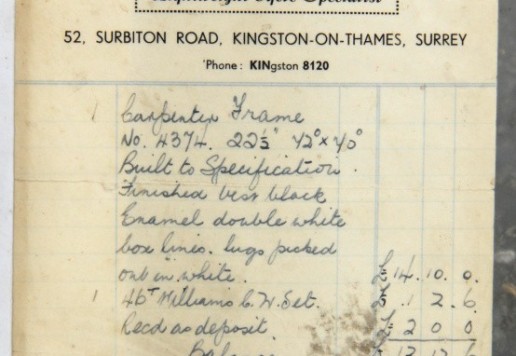 Lightweight Cycle Specialist
52, SURBITON ROAD, KINGSTON-ON-THAMES, SURREY
'Phone : KINgston 8120
1 Carpenter Frame
No. 4374. 22½" 72° x 70°
Built to Specification.
Finished best black
Enamel double white
box lines. lugs picked
out in white. 14. 10. 0.
1 46T Williams C.W. Set. 1 2. 6
Recd as deposit. 2 0 0
Balance 13 12 6